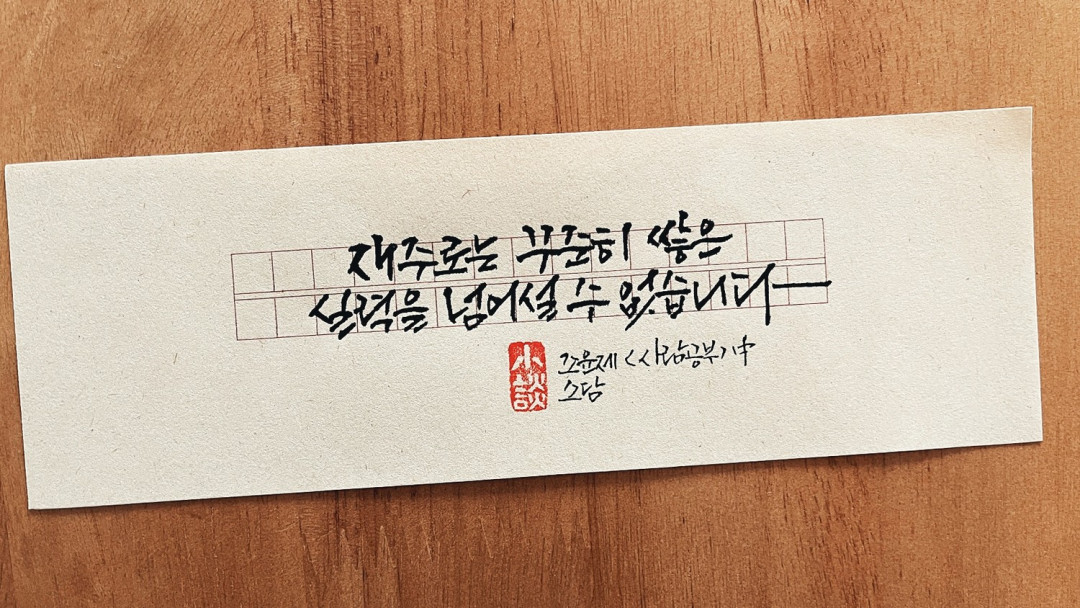 재주로는 꾸준히 쌓은
실력을 넘어설 수 없습니다
小談
조윤제 <사람공부> 中
소담